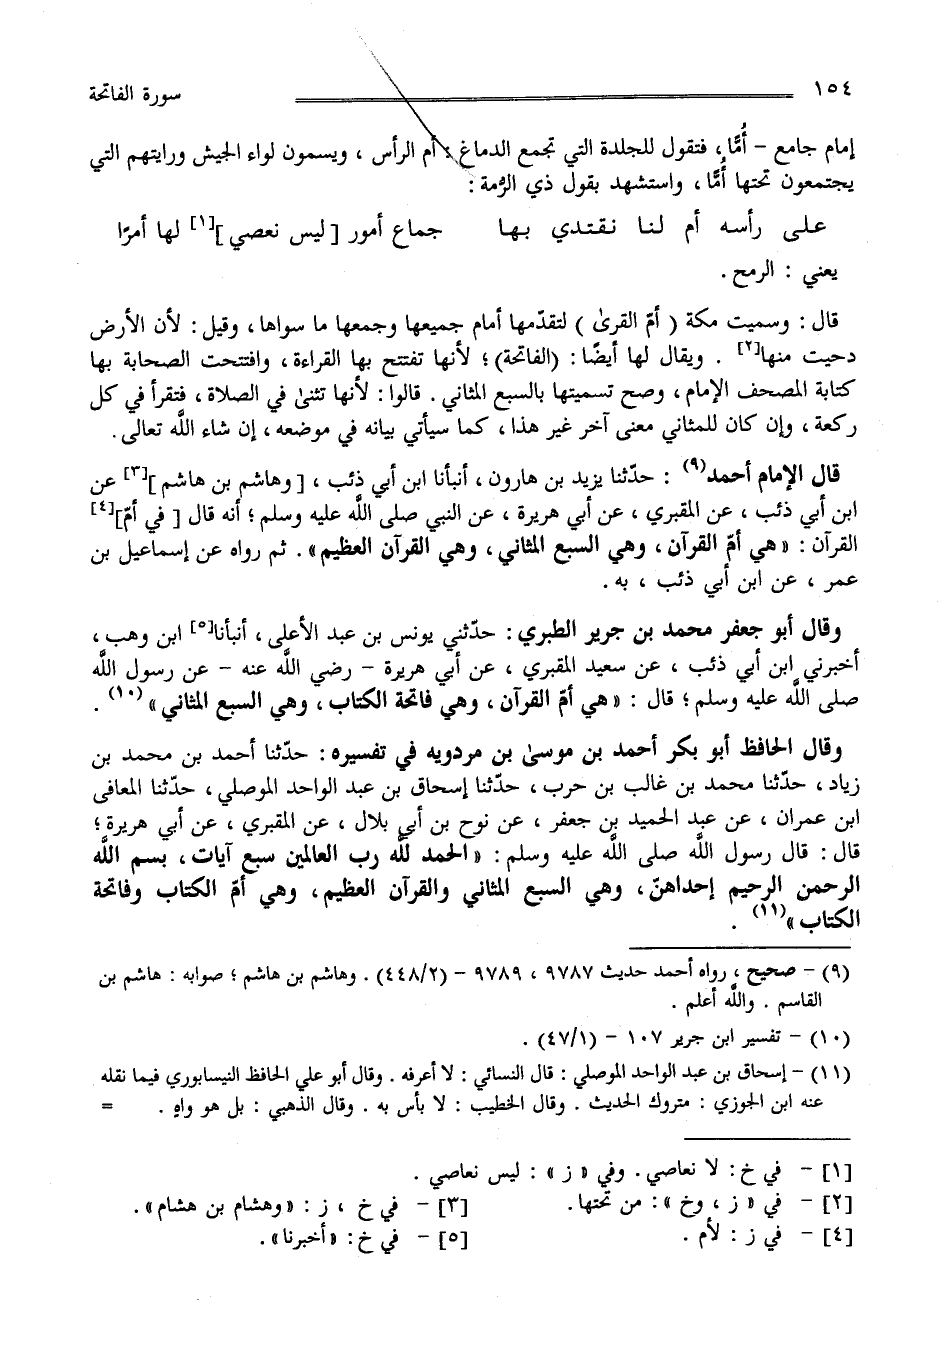 ١٥٤ سورة الفاتحة
إمام جامع - أُمًّا، فتقول للجلدة التي تجمع الدماغ : أم الرأس ، ويسمون لواء الجيش ورايتهم التي
يجتمعون تحتها أُمًّا ، واستشهد بقول ذي الرُّمة :
على رأسه أم لنا نقتدي بها جماع أمور [ ليس نعصي ][١] لها أمرًا
يعني : الرمح .
قال : وسميت مكة ( أمّ القرىٰ ) لتقدّمها أمام جميعها وجمعها ما سواها ، وقيل : لأن الأرض
دحيت منها[٢] . ويقال لها أيضًا : (الفاتحة) ؛ لأنها تفتتح بها القراءة ، وافتتحت الصحابة بها
كتابة المصحف الإمام ، وصح تسميتها بالسبع المثاني . قالوا : لأنها تثنىٰ في الصلاة ، فتقرأ في كل
ركعة ، وإن كان للمثاني معنى آخر غير هذا ، كما سيأتي بيانه في موضعه ، إن شاء اللَّه تعالى .
قال الإمام أحمد(٩) : حدّثنا يزيد بن هارون ، أنبأنا ابن أبي ذئب ، [ وهاشم بن هاشم ][٣] عن
ابن أبي ذئب ، عن المقبري ، عن أبي هريرة ، عن النبي صلى اللَّه عليه وسلم ؛ أنه قال [ في أمّ][٤]
القرآن : « هي أمّ القرآن ، وهي السبع المثاني ، وهي القرآن العظيم » . ثم رواه عن إسماعيل بن
عمر ، عن ابن أبي ذئب ، به .
وقال أبو جعفر محمد بن جرير الطبري : حدّثني يونس بن عبد الأعلى ، أنبأنا[٥] ابن وهب ،
أخبرني ابن أبي ذئب ، عن سعيد المقبري ، عن أبي هريرة - رضي اللَّه عنه - عن رسول اللَّه
صلى اللَّه عليه وسلم ؛ قال : « هي أمّ القرآن ، وهي فاتحة الكتاب ، وهي السبع المثاني »(١٠) .
وقال الحافظ أبو بكر أحمد بن موسىٰ بن مردويه في تفسيره : حدّثنا أحمد بن محمد بن
زياد ، حدّثنا محمد بن غالب بن حرب ، حدّثنا إسحاق بن عبد الواحد الموصلي ، حدّثنا المعافى
ابن عمران ، عن عبد الحميد بن جعفر ، عن نوح بن أبي بلال ، عن المقبري ، عن أبي هريرة ؛
قال : قال رسول اللَّه صلى اللَّه عليه وسلم : « الحمد للَّه رب العالمين سبع آيات ، بسم اللَّه
الرحمن الرحيم إحداهنّ ، وهي السبع المثاني والقرآن العظيم ، وهي أمّ الكتاب وفاتحة
الكتاب »(١١) .
(٩) - صحيح ، رواه أحمد حديث ٩٧٨٧ ، ٩٧٨٩ - (٤٤٨/٢) . وهاشم بن هاشم ؛ صوابه : هاشم بن
القاسم . واللَّه أعلم .
(١٠) - تفسير ابن جرير ١٠٧ - (٤٧/١) .
(١١) - إسحاق بن عبد الواحد الموصلي : قال النسائي : لا أعرفه . وقال أبو علي الحافظ النيسابوري فيما نقله
عنه ابن الجوزي : متروك الحديث . وقال الخطيب : لا بأس به . وقال الذهبي : بل هو واهٍ . =
[١] - في خ : لا نعاصي . وفي « ز » : ليس نعاصي .
[٢] - في « ز ، وخ » : من تحتها . [٣] - في خ ، ز : « وهشام بن هشام » .
[٤] - في ز : لأم . [٥] - في خ : « أخبرنا » .